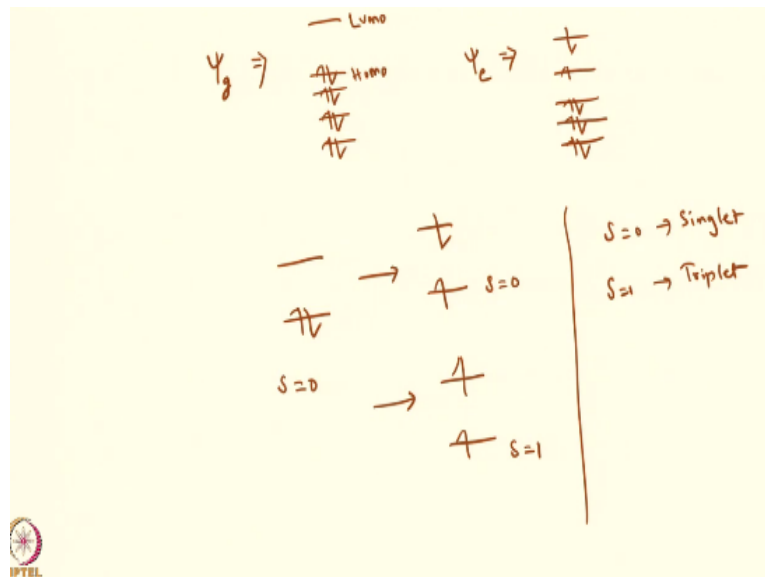 Lumo
Ψg ⇒
Homo
Ψe ⇒
S=0
S=0
S=1
S=0 → Singlet
S=1 → Triplet
IPTEL